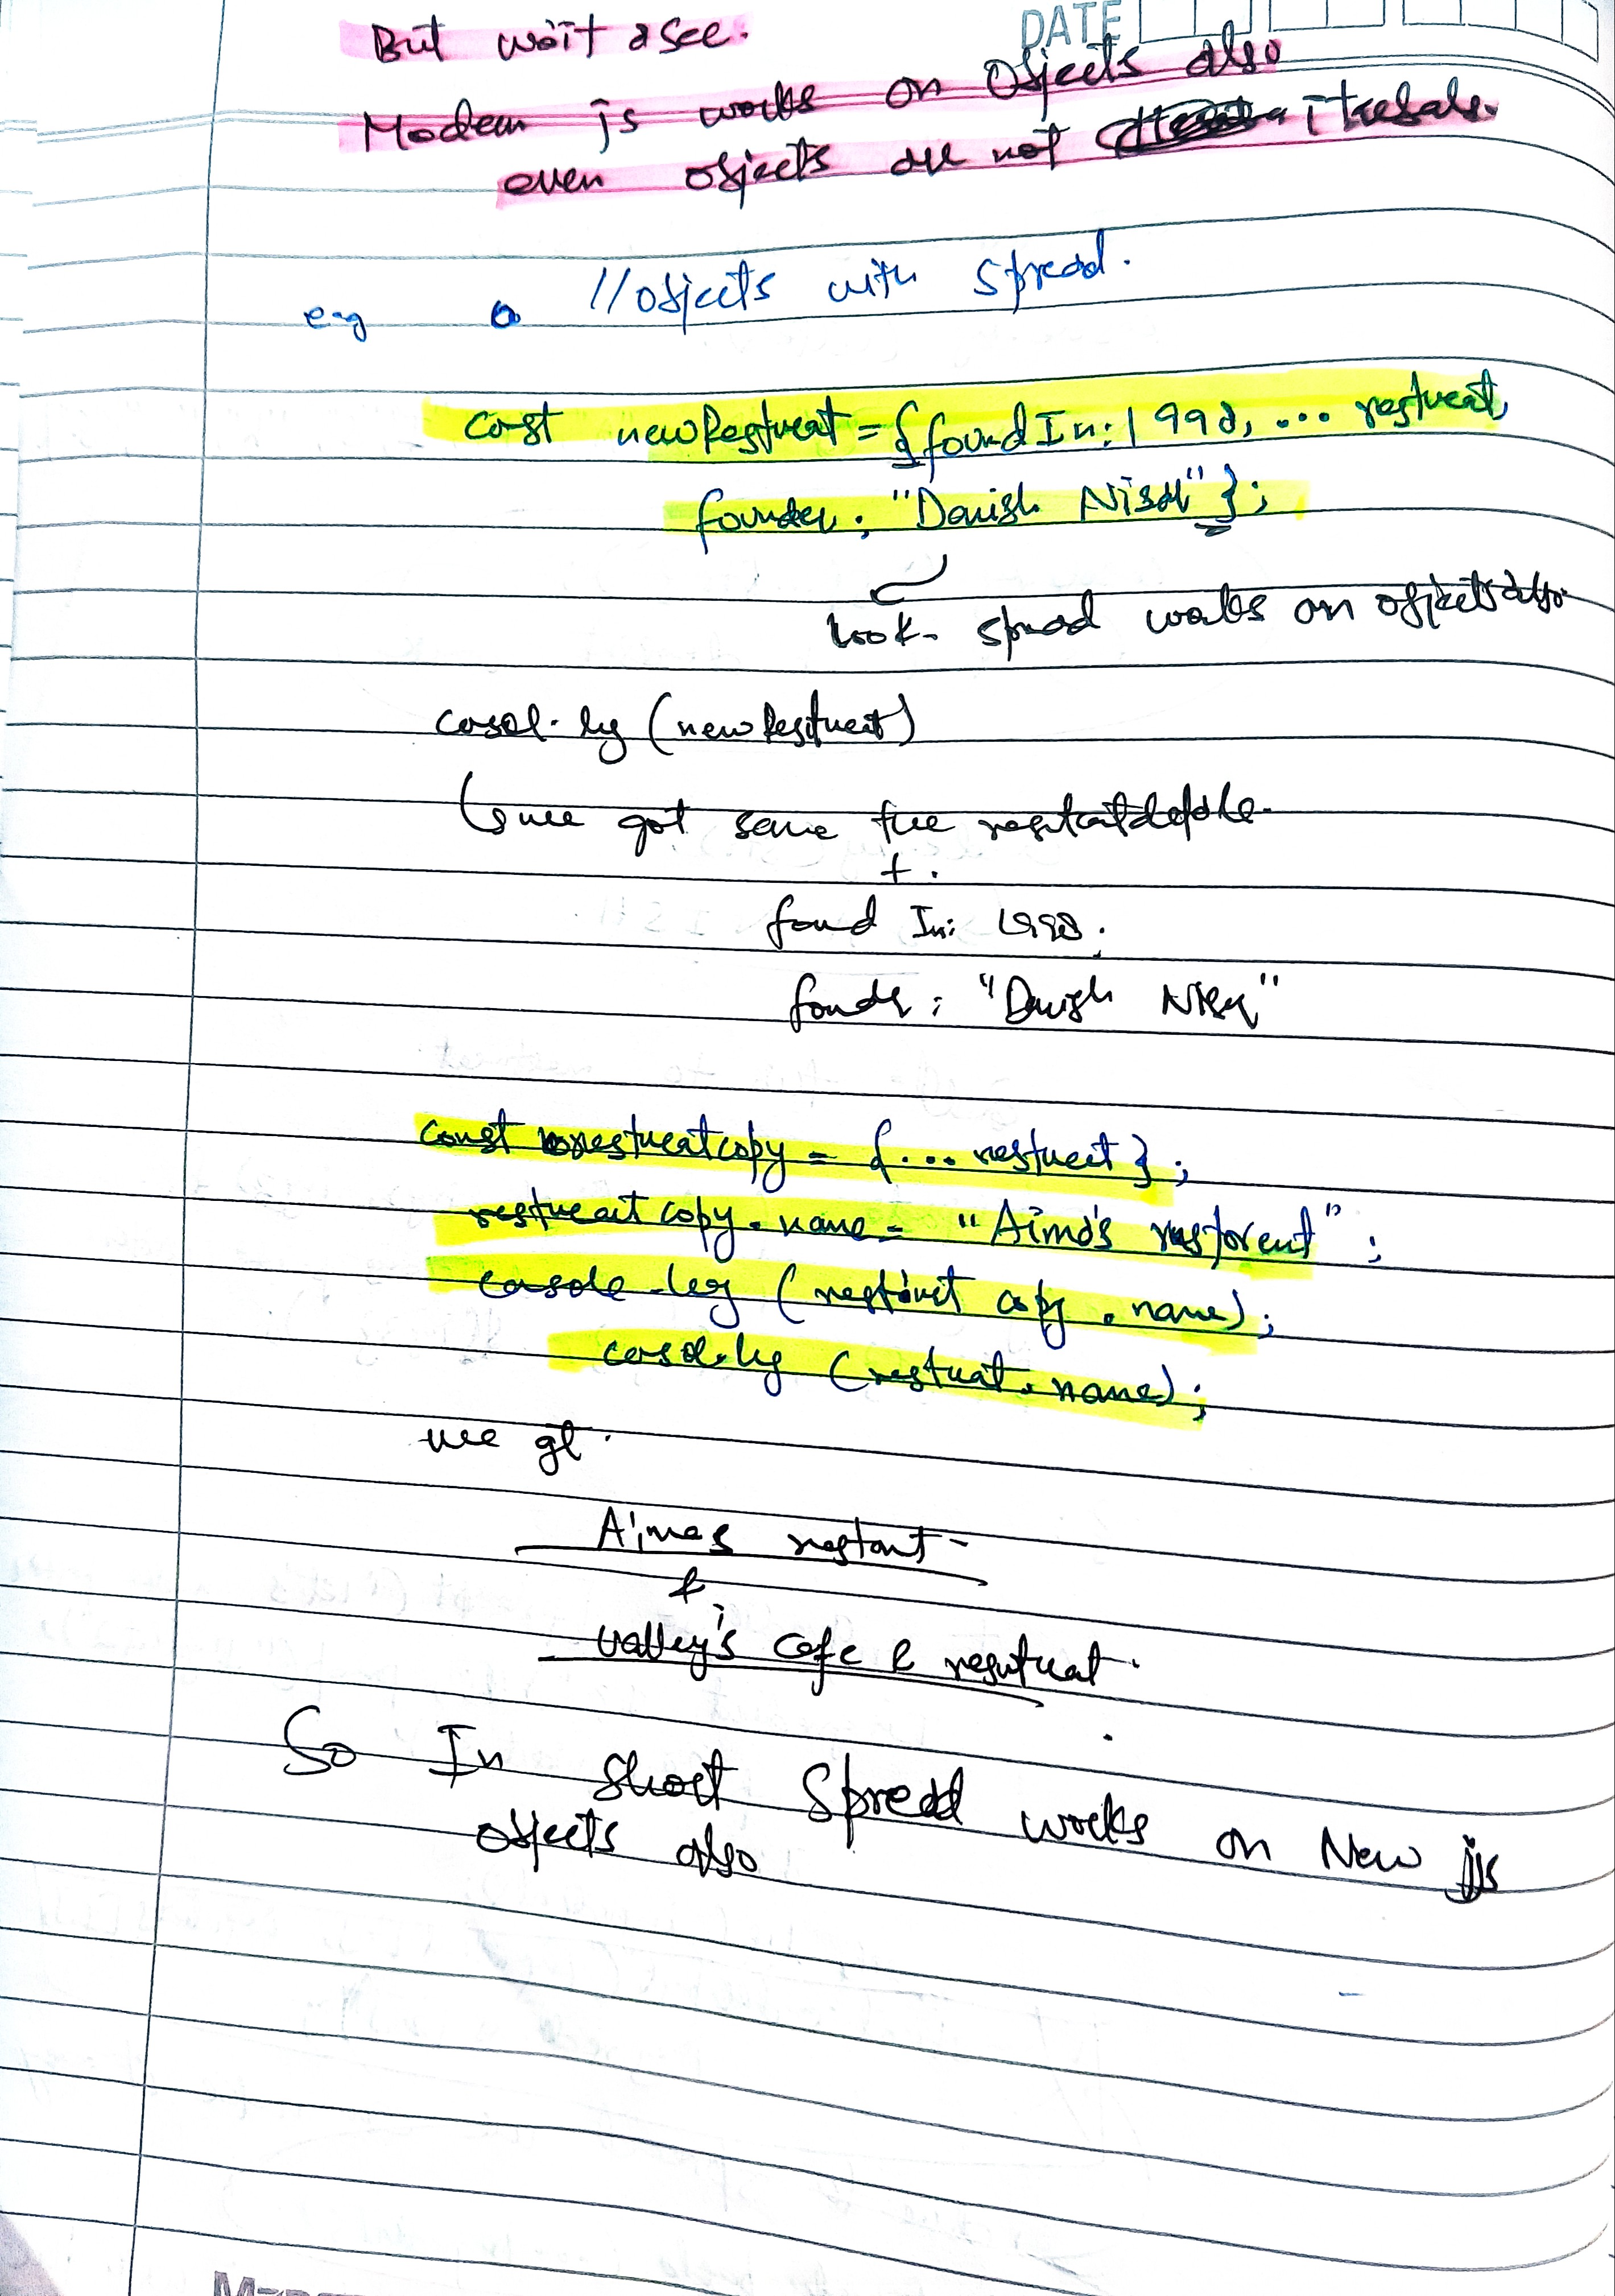 DATE
But wait & see.
Modern js works on Objects also
even objects are not iterable.
eg // Objects with spread.
const newResturent = { foundIn: 1998, ... resturent,
founder: "Danish Nisar" };
Look spread works on objects also.
consol.log (newResturent)
we got same the
+
found In: 1998.
founder: "Danish Nisar"
const resturentcopy = { ... resturent };
restuerent copy.name = "Aima's restorent" ;
console.log ( copy . name);
consol.log (restuat. name);
we get.
Aimas restant
&
Valley's cafe & resutuat.
So In short Spread works on New js
objects also